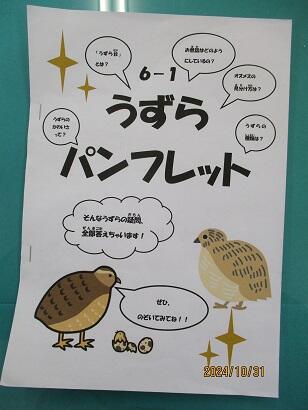 「うずら芸」
とは？
お世話はどのよう
にしているの？
オスメスの
見分け方は？
6-1
うずらの
かわいさ
って？
うずら
うずらの
種類は？
パンフレット
そんなうずらの疑問、
全部答えちゃいます！
ぜひ、
のぞいてみてね！！
2024/10/31